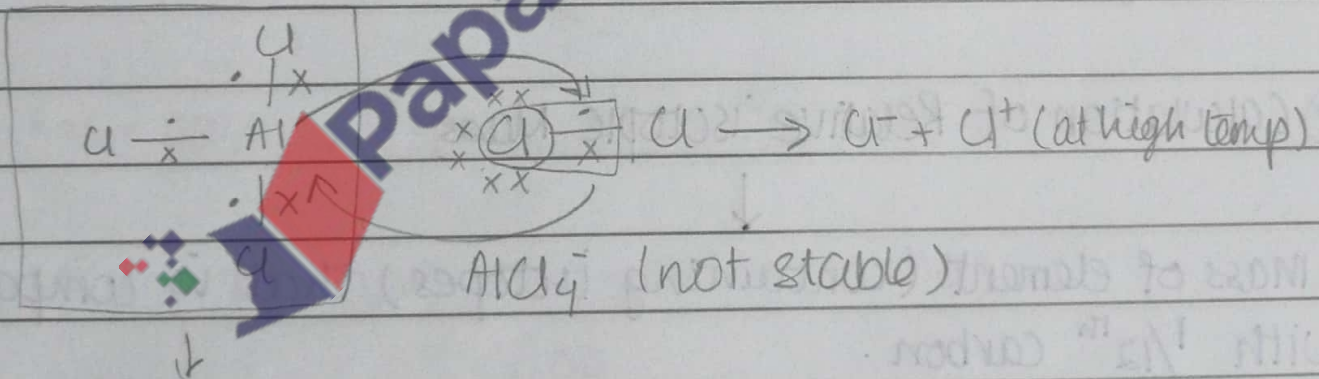 Cl
Cl — Al Cl — Cl → Cl⁻ + Cl⁺ (at high temp)
Cl AlCl₄⁻ (not stable)
Papa